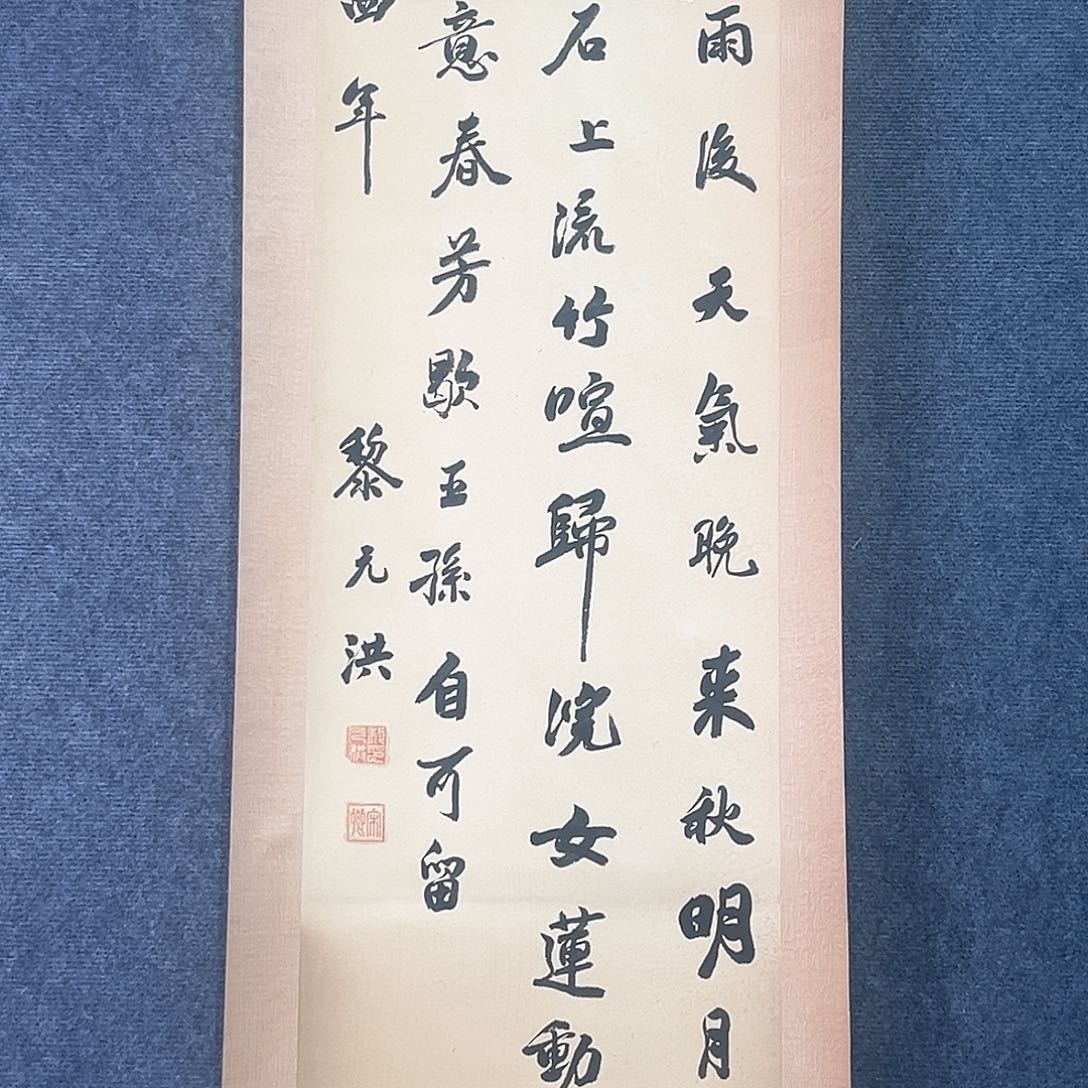 雨後天氣晚来秋明月
石上流竹喧歸浣女蓮動
意春芳歇王孫自可留
年
黎元洪